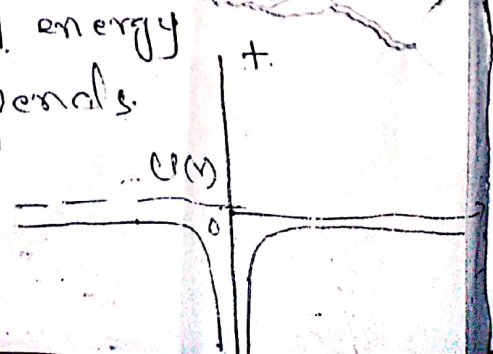 energy
pends.
+
U(r)
0